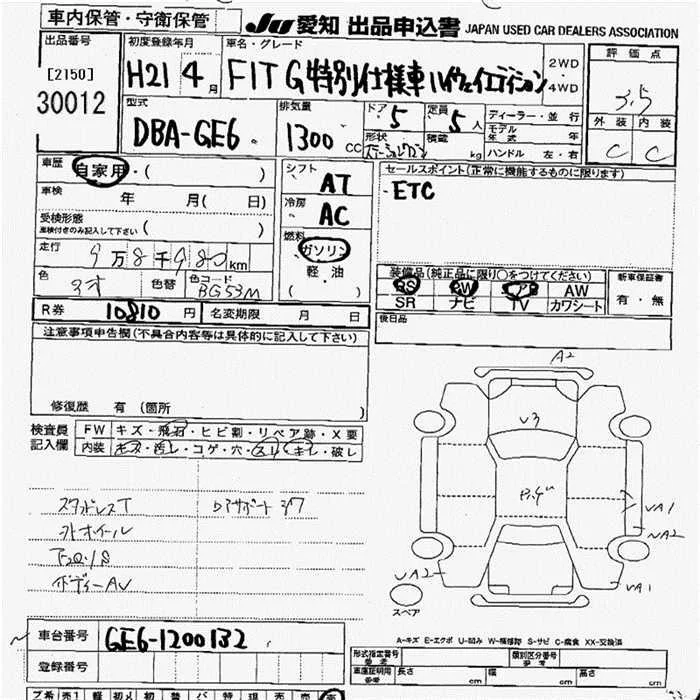 車内保管・守衛保管
JU 愛知 出品申込書 JAPAN USED CAR DEALERS ASSOCIATION
出品番号
[2150]
30012
初度登録年月
H21 4月
車名・グレード
FIT G特別仕様車ハイウェイエディション
2WD
・
4WD
評価点
3.5
外装 内装
C C
型式
DBA-GE6
排気量
1300 cc
ドア
5
定員
5人
形状
積載
kg
ディーラー・並行
モデル年式 年
ハンドル 左・右
車歴
自家用・( )
車検
年 月( 日)
受検形態
車検付きのみ記入して下さい ( )
走行
9万8千980km
色
色替
色コード
BG53M
シフト
AT
冷房
AC
燃料
ガソリン
軽油
( )
セールスポイント(正常に機能するものに限ります)
ETC
装備品(純正品に限り○をつけてください)
PS PW エアB AW
SR ナビ TV カワシート
新車保証書
有・無
後日品
R券 10810円
名変期限 月 日
注意事項申告欄(不具合内容等は具体的に記入して下さい)
修復歴 有(箇所 )
検査員記入欄
FW キズ・飛石・ヒビ割・リペア跡・X要
内装 キズ・汚レ・コゲ・穴・スレ・キレ・破レ
スタッドレスT
外ホイール
ボディーAU
A2
U3
UA1
UA2
UA1
スペア
A-キズ E-エクボ U-凹み W-補修跡 S-サビ C-腐食 XX-交換済
車台番号
GE6-1200132
登録番号
形式指定番号
参考
類別区分番号
参考
車庫証明用
参考
長さ cm
幅 cm
高さ cm